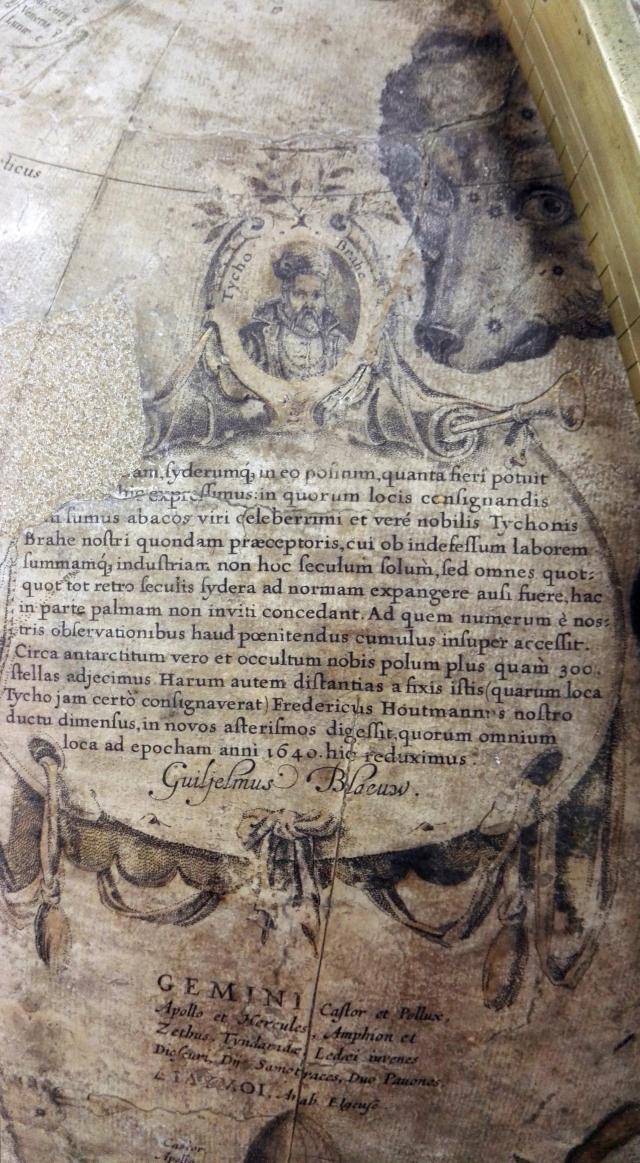 Veneris
Lunæ
licus
Tycho Brahe
am, syderumq; in eo positum, quanta fieri potuit
expressimus: in quorum locis consignandis
sumus abacos viri celeberrimi et veré nobilis Tychonis
Brahe nostri quondam præceptoris, cui ob indefessum laborem
summamq; industriam non hoc seculum solum, sed omnes quot-
quot tot retro seculis sydera ad normam expangere ausi fuere, hac
in parte palmam non inviti concedant. Ad quem numerum è nos-
tris observationibus haud pœnitendus cumulus insuper accessit.
Circa antarctitum vero et occultum nobis polum plus quam 300.
stellas adjecimus Harum autem distantias a fixis istis (quarum loca
Tycho jam certò consignaverat) Fredericus Houtmannus nostro
ductu dimensus, in novos asterismos digessit, quorum omnium
loca ad epocham anni 1640. hic reduximus.
Guiljelmus Blaeuw.
GEMINI Castor et Pollux,
Apollo et Hercules, Amphion et
Zethus, Tyndaridæ, Ledæi iuvenes
Dioscuri, Dij Samotraces, Duo Pavones
Arab. Elgeuse
Castor
Apollo